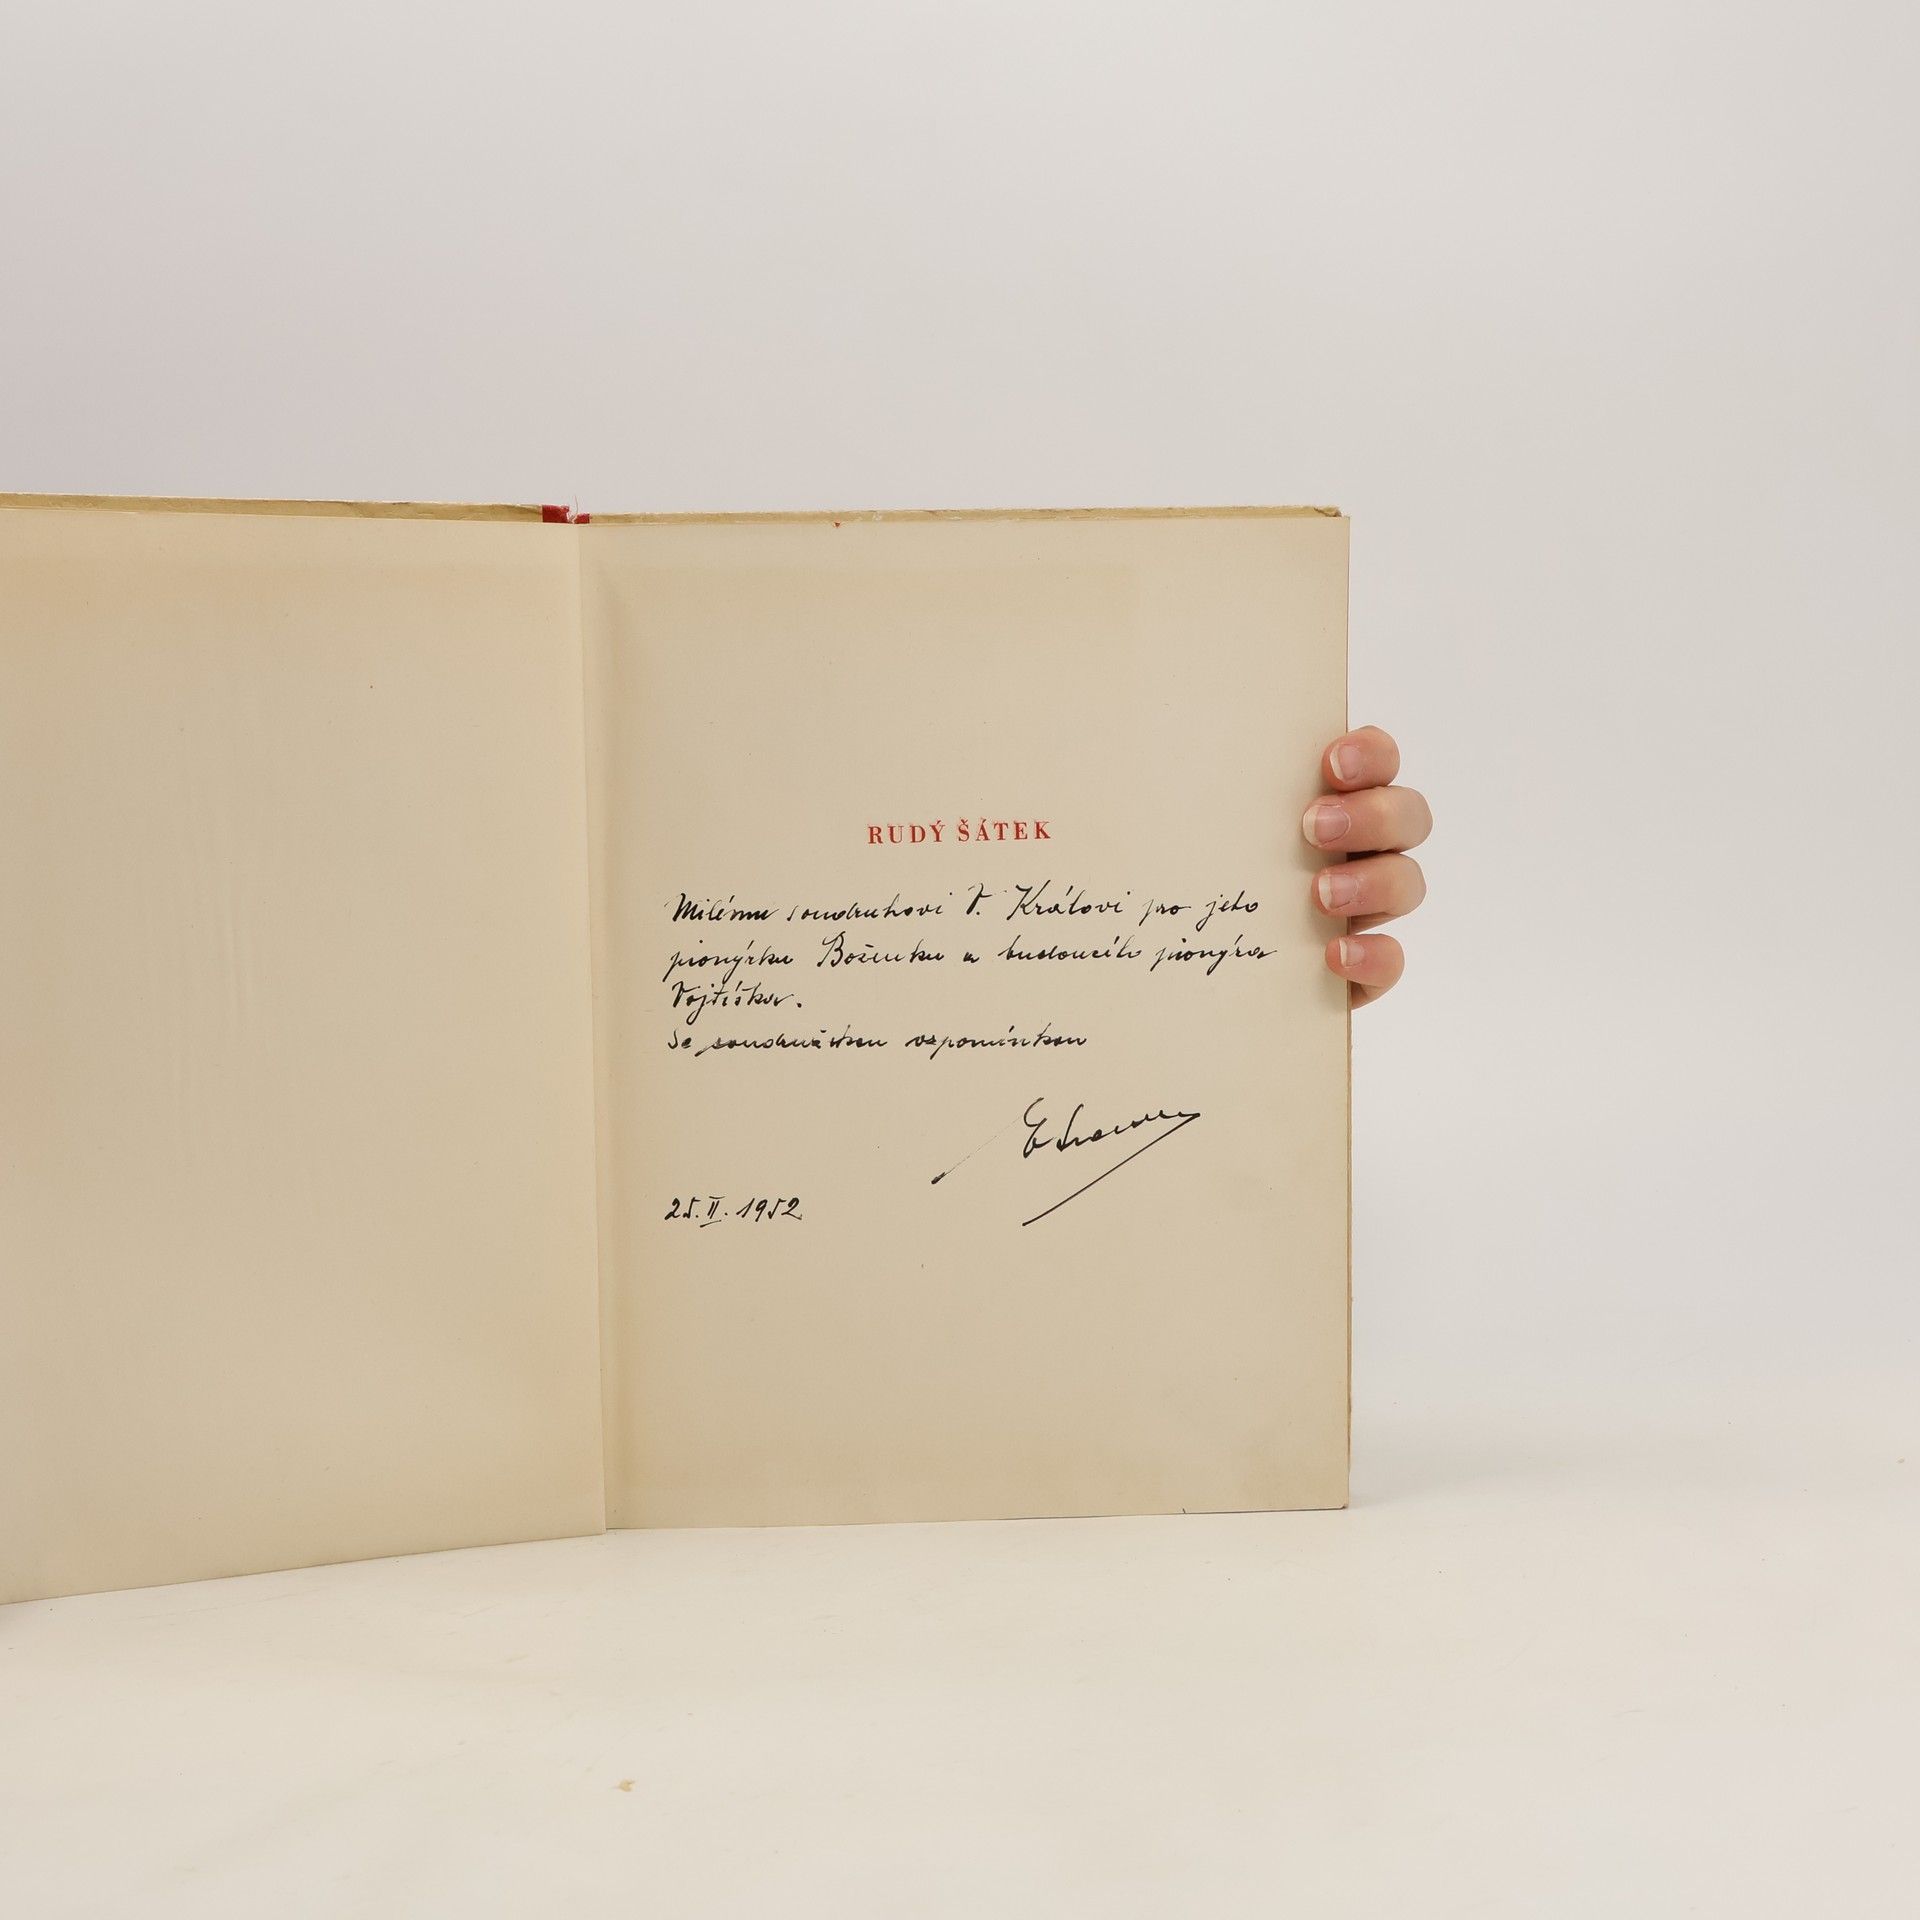 RUDÝ ŠÁTEK
Milému soudruhovi V. Královi pro jeho
pionýrku Boženku a budoucího pionýra
Vojtíška.
Se soudružskou vzpomínkou
25. II. 1952